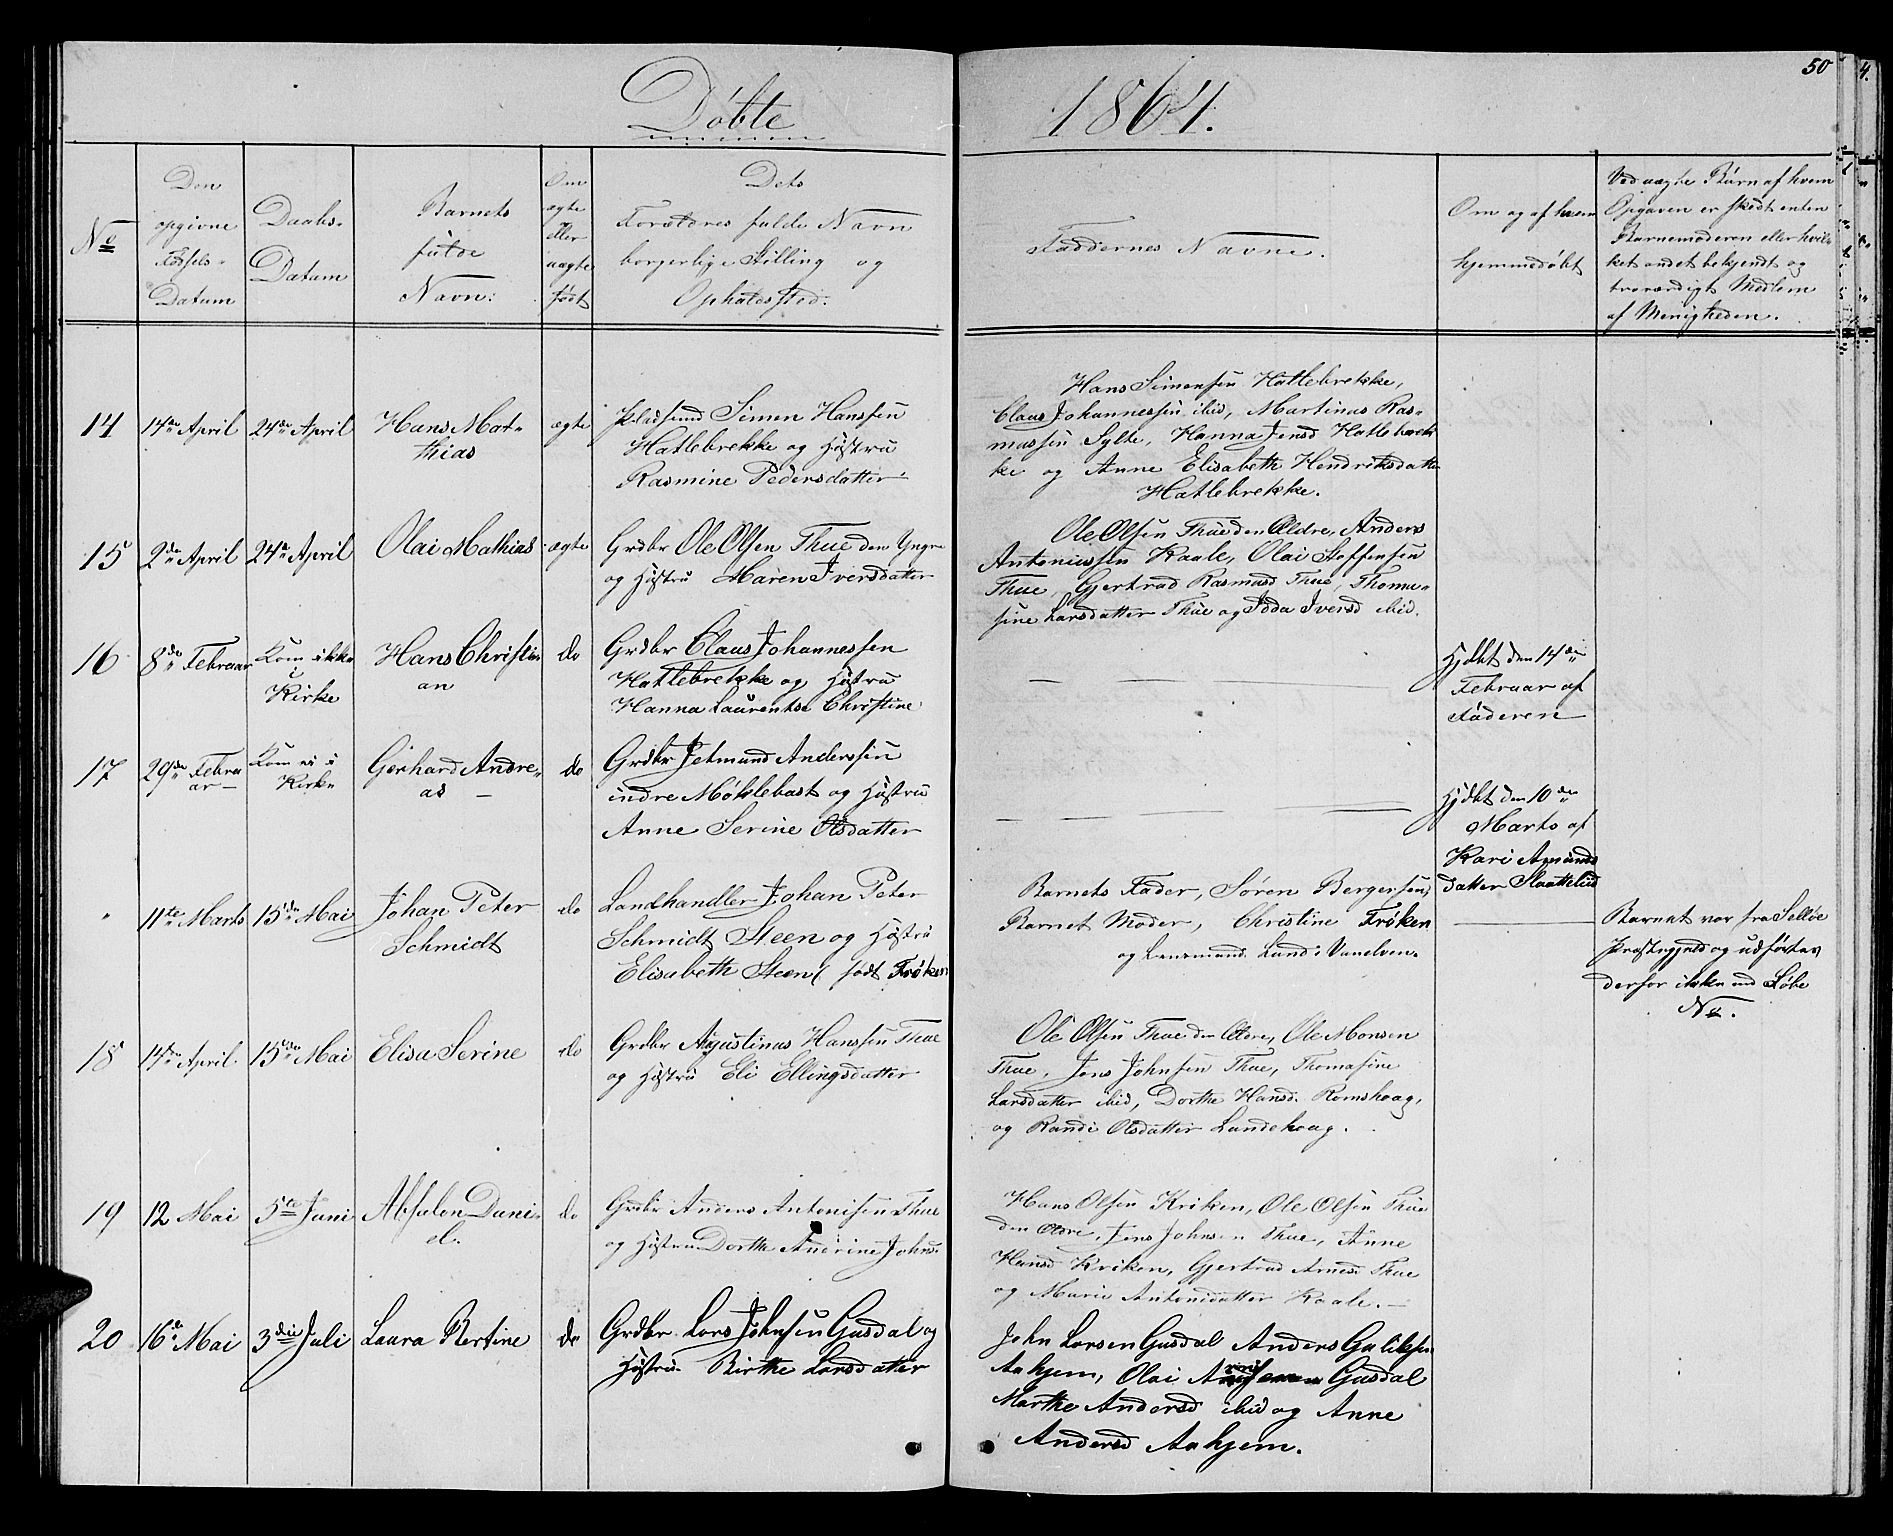 Døbte
1864.
50
4.
No
Den
opgivne
Fødsels-
Datum
Daabs-
Datum
Barnets
fulde
Navn:
Om
ægte
eller
uægte
født
Dets
Forældres fulde Navn
borgerlige Stilling og
Opholdssted:
Faddernes Navne.
Om og af hvem
hjemmedøbt
Ved uægte Børn af hvem
Opgaven er skedt enten
Barnemoderen eller hvil-
ket andet bekjendt og
troværdigt Medlem
af Menigheden.
14
14de April
24de April
Hans Mat-
thias
ægte
Pladsmd Simen Hanssen
Hatlebrekke og Hustru
Rasmine Pedersdatter
Hans Simensen Hatlebrekke,
Claus Johannessen ibid, Martinus Ras-
mussen Sylte, Hanna Jensd Hatlebrek
ke og Anne Elisabeth Hendriksdatter
Hatlebrekke.
15
2de April
24de April
Olai Mathias
ægte
Grdbr Ole Olsen Thue den Yngre
og Hustru Maren Iversdatter
Ole Olsen Thue den Ældre, Anders
Antoniussen Kaale, Olai Steffensen
Thue, Gjertrud Rasmusd Thue, Thoma-
sine Larsdatter Thue og Idda Iversd ibid.
16
8de Februar
Kom ikke
i
Kirke
Hans Christi-
an
do
Grdbr Claus Johannessen
Hatlebrekke og Hustru
Hanna Laurentse Christine
Hjdbt den 14de
Februar af
Faderen
17
29de Febru
ar
Kom ei i
Kirke
Gerhard Andre-
as
do
Grdbr Jetmund Anderssen
indre Møklebost og Hustru
Anne Serine Olsdatter
Hjdbt den 10de
Marts af
Kari Amunds
datter Slaattelid
"
11te Marts
15de Mai
Johan Peter
Schmidt
do
Landhandler Johan Peter
Schmidt Steen og Hustru
Elisabeth Steen (født Frøken
Barnets Fader, Søren Bergersen,
Barnet Moder, Christine Frøken
og Lensmand Lund i Vanelven.
Barnet var fra Selløe
Præstegjeld og udførtes
derfor ikke med Løbe
No.
18
14de April
15de Mai
Elisa Serine
do
Grdbr Agustinus Hanssen Thue
og Hustru Eli Ellingsdatter
Ole Olsen Thue den Ældre, Ole Monsen
Thue, Jens Johnsen Thue, Thomasine
Larsdatter ibid, Dorthe Hansd. Romshoag,
og Randi Olsdatter Landehoag.
19
12 Mai
5te Juni
Absalon Dani-
el.
do
Grdbr Anders Antonisen Thue
og Hustru Dorthe Andrine Johns.
Hans Olsen Kriken, Ole Olsen Thue
den Ældre, Jens Johnsen Thue, Anne
Hansd Kriken, Gjertrud Arnesd Thue
og Marie Antonidatter Kaale.
20
16de Mai
3die Juli
Laura Bertine
do
Grdbr. Lars Johnsen Gusdal og
Hustru Birthe Larsdatter
John Larsen Gusdal Anders Guliksen
Aahjem, Olai Gusdal
Marthe Andersd ibid og Anne
Andersd Aahjem.